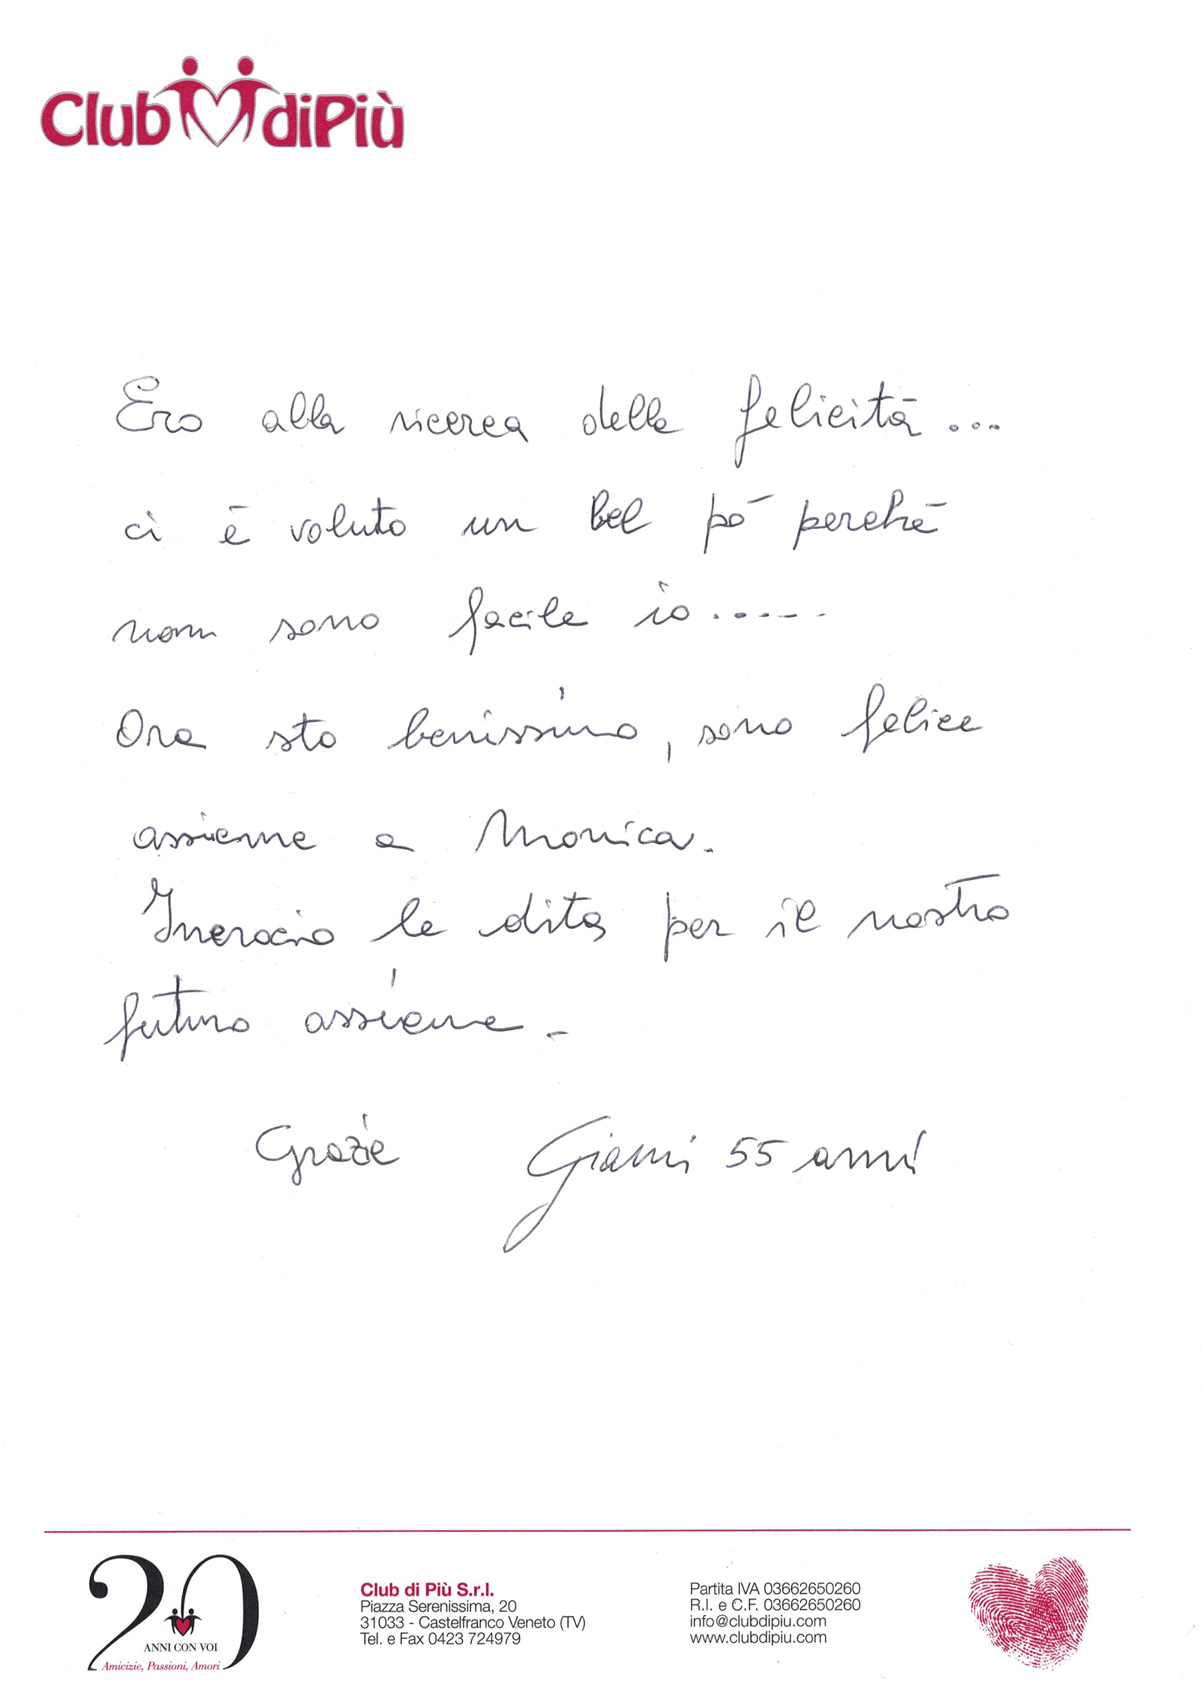 Club diPiù
Ero alla ricerca della felicità ...
ci è voluto un bel pò perchè
non sono facile io ......
Ora sto benissimo, sono felice
assieme a Monica.
Incrocio le dita per il nostro
futuro assieme.
Grazie Gianni 55 anni
20
ANNI CON VOI
Amicizie, Passioni, Amori
Club di Più S.r.l.
Piazza Serenissima, 20
31033 - Castelfranco Veneto (TV)
Tel. e Fax 0423 724979
Partita IVA 03662650260
R.I. e C.F. 03662650260
info@clubdipiu.com
www.clubdipiu.com